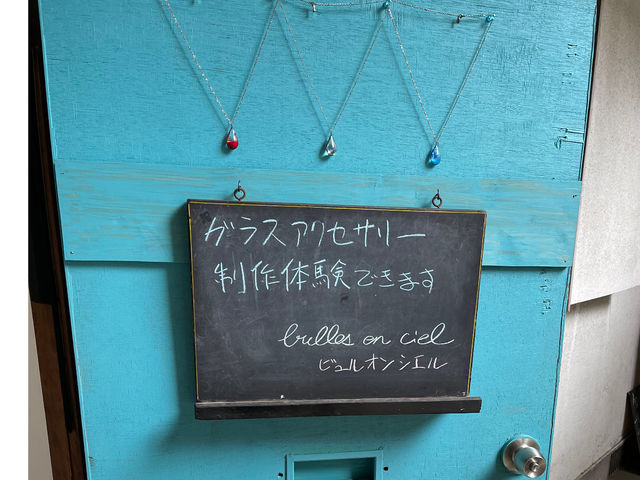 ガラスアクセサリー
制作体験できます
bulles en ciel
ビュルオンシエル